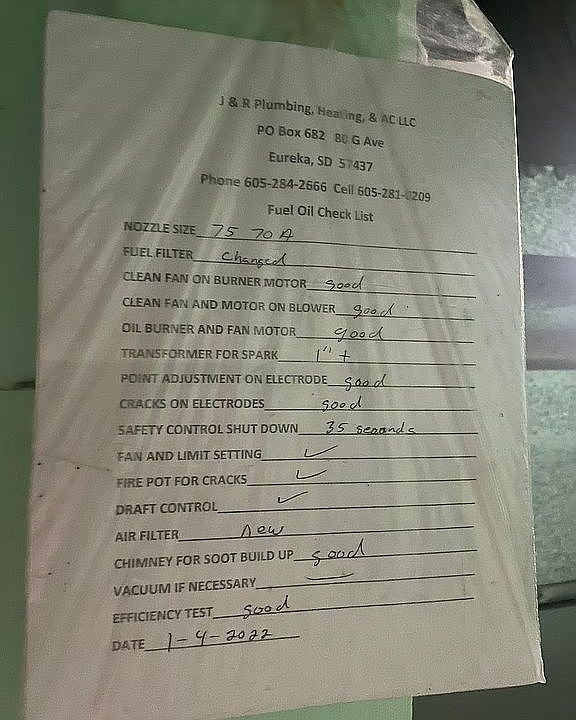 J & R Plumbing, Heating, & AC LLC
PO Box 682 80 G Ave
Eureka, SD 57437
Phone 605-284-2666 Cell 605-281-0209
Fuel Oil Check List
NOZZLE SIZE 75 70 A
FUEL FILTER Changed
CLEAN FAN ON BURNER MOTOR good
CLEAN FAN AND MOTOR ON BLOWER good
OIL BURNER AND FAN MOTOR good
TRANSFORMER FOR SPARK 1" +
POINT ADJUSTMENT ON ELECTRODE good
CRACKS ON ELECTRODES good
SAFETY CONTROL SHUT DOWN 35 seconds
FAN AND LIMIT SETTING ✓
FIRE POT FOR CRACKS ✓
DRAFT CONTROL ✓
AIR FILTER New
CHIMNEY FOR SOOT BUILD UP good
VACUUM IF NECESSARY —
EFFICIENCY TEST good
DATE 1-4-2022